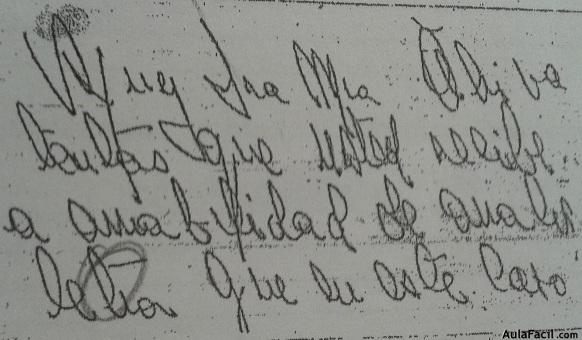 Muy Sra Mia Ahi va
tantas que usted recibe
a amabilidad de
letra que en este caso
AulaFacil.com